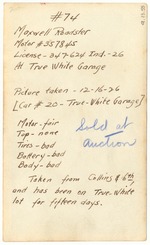 #74
Maxwell Roadster
Motor #357845
License - 347624 Ind. - 26
At True White Garage
Picture taken - 12-16-26
[Car #20 - True-White Garage]
Motor - fair
Top - none
Tires - bad
Battery - bad
Body - bad
Sold at
auction
Taken from Collins & 6th,
and has been on True-White
lot for fifteen days.